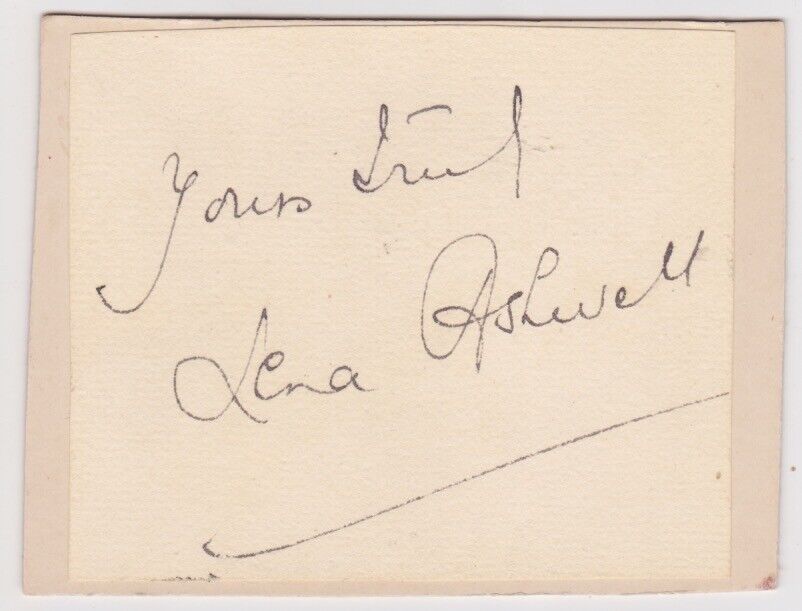 Yours truly
Lena Ashwell